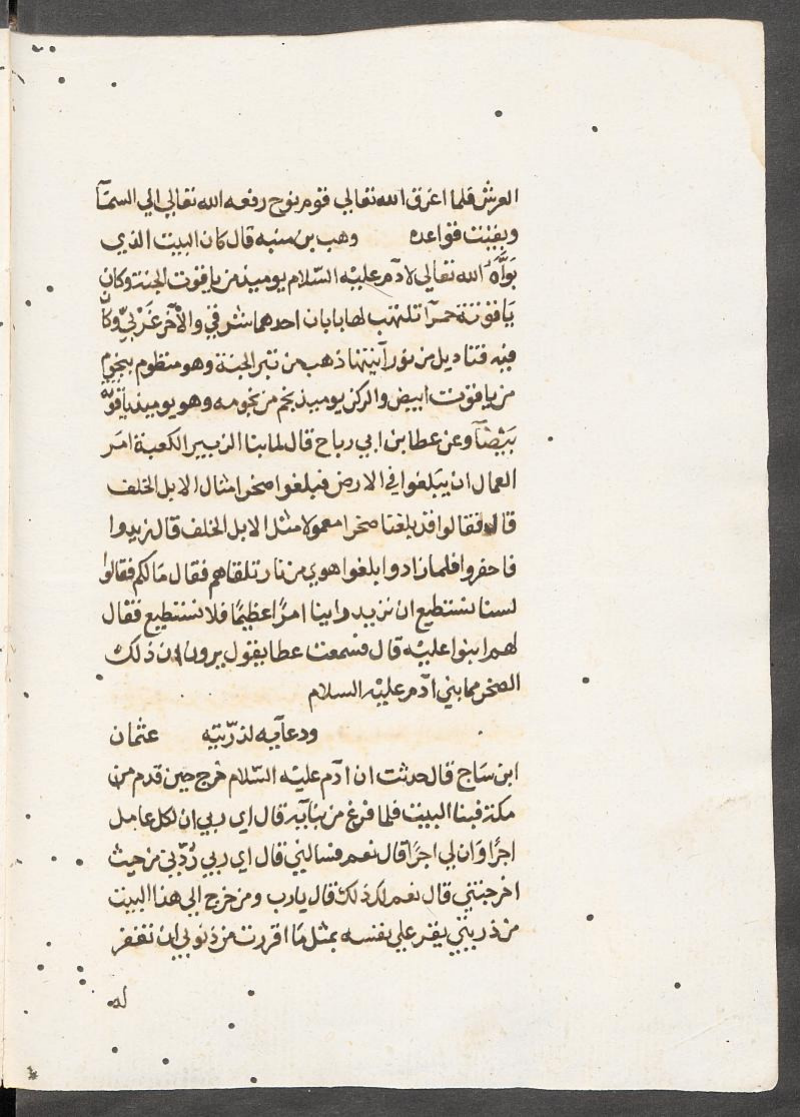 العرش فلما اغرق الله تعالي قوم نوح رفعه الله تعالي الي السمآ
وبقيت قواعده وهب بن منبه قال كان البيت الذي
بَوَّأهُ الله تعالي لادٓم عليْه السّلام يوميذ من ياقوت الجنة وكان
يَاقوتة حمرآ تلتهب لها بابان احدهما شرقي والاٰخر غَرْبيٌّ وكاَن
فيه قناديل من نور آنيتها ذهب من تبر الجنة وهو منظوم بنجوم
من ياقوت ابيض والركن يوميذ نجم من نجومه وهو يوميذ ياقوتة
بَيْضآ وعن عطا بن ابي رباح قال لما بنا الزبير الكعبة امَر
العمال ان يَبلغوا في الارض فبلغوا صخرا مثال الابل الخلف
قال فقالوا قد بلغنا صخرا معمولا مثل الابل الخلف قال زيدوا
فاحفروا فلما زادوا بلغوا هوي من نار تلقاهم فقال مَالكم فقالوا
لسنا نستطيع ان نزيد راينا امرًا عظيمًا فلا نستطيع فقال
لهم ابنوا عليْه قال فسمعت عطا يقول يرون ان ذلك
الصخر مما بني ادٓم عليْه السلام
ودعآيه لذرّيته عثمان
ابن سَاج قال حدثت ان ادٓم عليه السّلام خرج حين قدم من
مكة فبنا البيت فلما فرغ من بنآيه قال اي ربي ان لكل عامل
اجرًا وَان لي اجرًا قال نعم فسالني قال اي ربي رُدّني من حيث
اخرجتني قال نعم لك ذلك قال يا رب ومن خرج الي هذا البيت
من ذريتي يقر علي نفسه بمثل مَا اقررت من ذنوبي ان تغفر
له